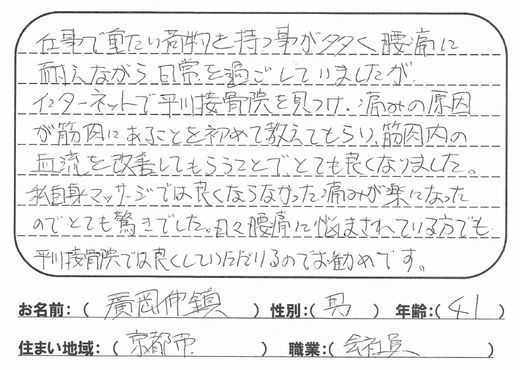 仕事で重たい荷物を持つ事が多く腰痛に
耐えながら日常を過ごしていましたが、
インターネットで平川接骨院を見つけ、痛みの原因
が筋肉にあることを初めて教えてもらい、筋肉内の
血流を改善してもらうことでとても良くなりました。
私自身マッサージでは良くならなかった痛みが楽になった
のでとても驚きでした。日々腰痛に悩まされている方でも
平川接骨院では良くしていただけるのでお勧めです。
お名前：（廣岡伸鎮）性別：（男）年齢：（41）
住まい地域：（京都市）職業：（会社員）